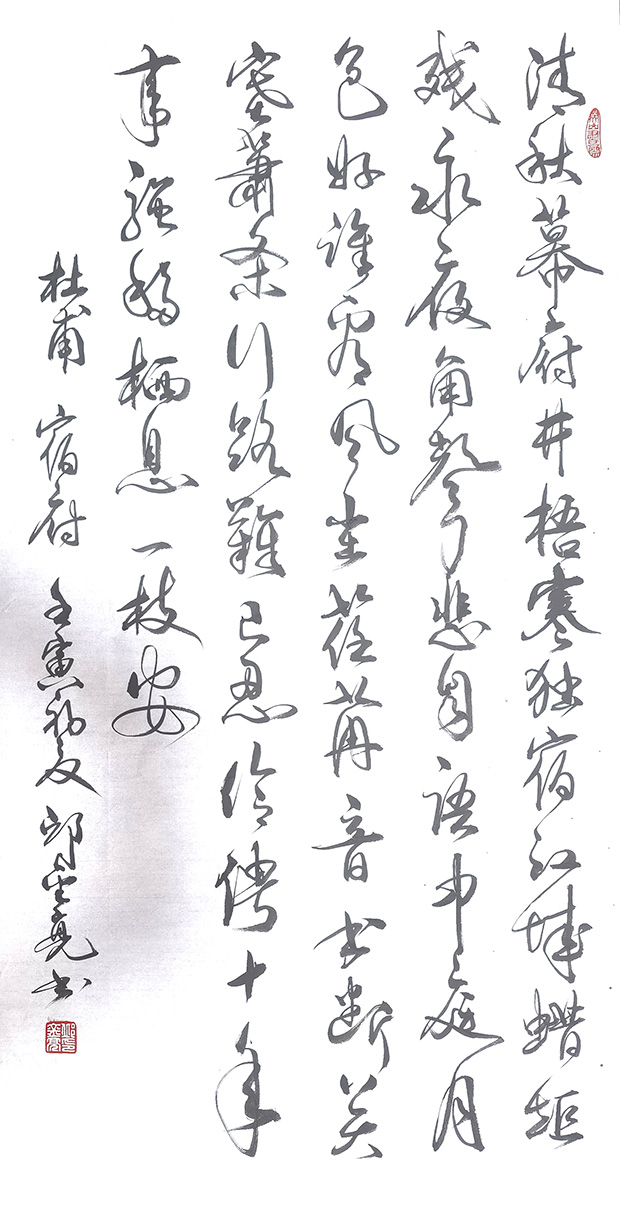 清秋幕府井梧寒独宿江城蜡炬
残永夜角聲悲自语中庭月
色好谁看风尘荏苒音书断关
塞蕭条行路難已忍伶俜十年
事强移栖息一枝安
杜甫 宿府 壬寅初夏 邱亮书